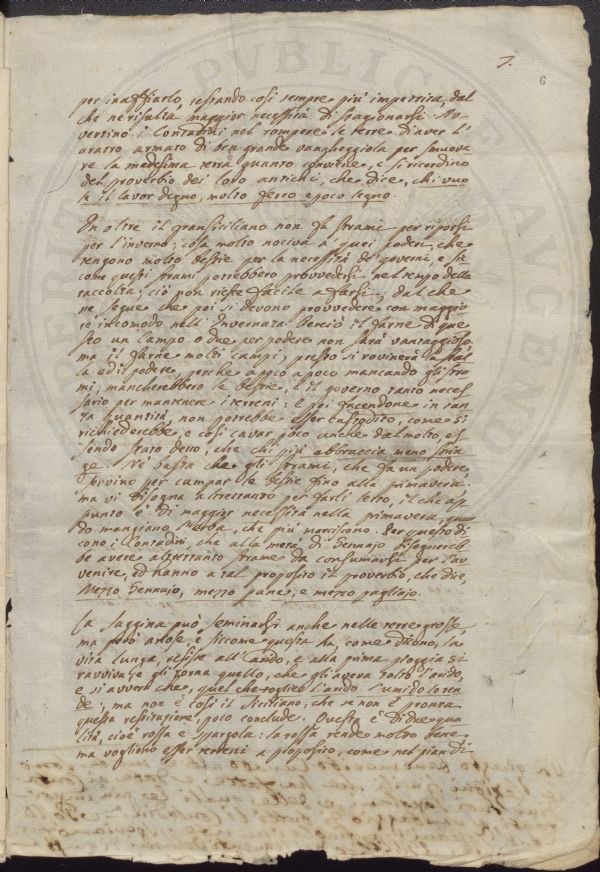 7.
6
per inaffiarlo, restando così sempre più impetrita, dal
che ne risulta maggior necessità di stagionarsi. Av-
vertino i Contadini nel rompere le terre d'aver l'
aratro armato di ben grande vangheggiola per smuove
re la medesima terra quanto conviene, e si ricordino
del proverbio dei loro antichi, che dice, chi vuo
le il lavor degno, molto ferro e poco legno.
In oltre il gransiciliano non fa strami per riporsi
per l'inverno; cosa molto nociva a quei poderi, che
tengono molte bestie per la necessità de' governi, e sic
come questi strami potrebbero provvedersi nel tempo della
raccolta; ciò non riesce facile a farsi; dal che
ne segue che poi si devono provvedere con maggio
re incomodo nell'Invernata. Perciò il farne di que
sto un campo o due per podere non sarà vantaggioso
ma il farne molti campi, presto si rovinerà la stal
la ed il podere, perche a poco a poco mancando gli stra
mi, mancherebbero le bestie, e il governo tanto neces
sario per mantenere i terreni: E poi facendone in tan
ta quantità, non potrebbe esser custodito, come si
richiederebbe e così cavar poco anche dal molto, es
sendo stato detto, che chi più abbraccia meno strin
ge. Nè basta che gli strami, che fa un podere
servino per campar le bestie fino alla primavera
ma vi bisogna altrettanto per farli letto, il che ap
punto è di maggior necessità nella primavera, quan
do mangiano l'erba, che più marciscono. Per questo di
cono i Contadini che alla metà di Gennajo bisognereb
be avere altrettanto strame da consumarsi per l'av
venire, ed hanno a tal proposito il proverbio, che dice,
Mezzo Gennajo, mezzo pane, e mezzo pagliajo.
La saggina può seminarsi anche nelle terre grosse,
ma però ariose, e siccome questa ha, come dicono, la
vita lunga, resiste all'arido, e alla prima pioggia si
ravviva, e gli torna quello, che gli aveva tolto l'arido,
e si avvera che, quel che toglie l'arido l'umido lo ren
de; ma non è così il Siciliano, che se non è pronta
questa restituzione, poco conclude. Questa è di due qua
lità, cioè rossa e spargola: la rossa rende molto bene
ma vogliono esser terreni a proposito, come nel pian di